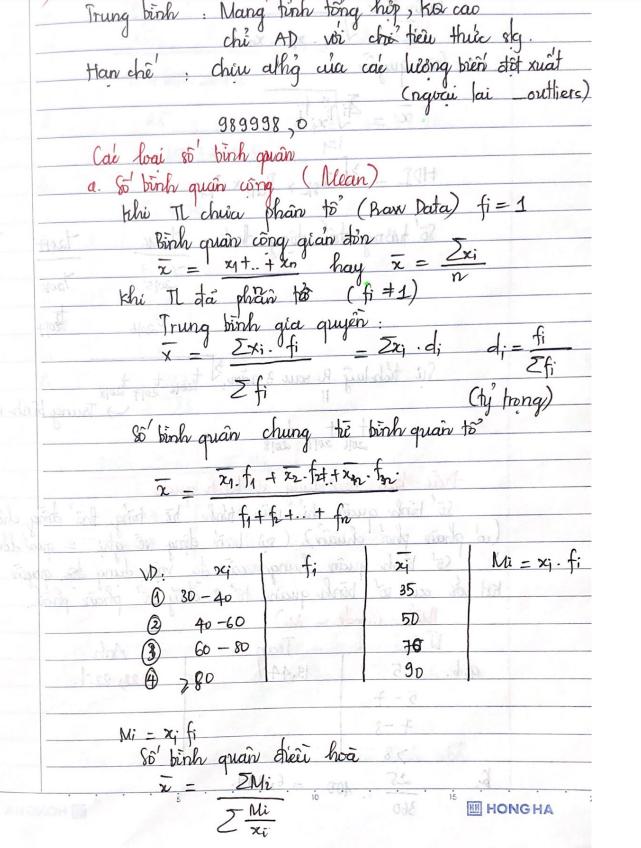 Trung bình : Mang tính tổng hợp, KQ cao
chỉ AD với chỉ tiêu thức slg.
Hạn chế : chịu ahg̉ của các lượng biến đột xuất
(ngoại lai _outliers)
989998,0
Các loại số bình quân
a. Số bình quân cộng (Mean)
Khi TL chưa phân tổ (Raw Data) fi = 1
Bình quân cộng giản đơn
x̄ = x1+..+xn / n hay x̄ = Σxi / n
Khi TL đã phân tổ (fi ≠ 1)
Trung bình gia quyền :
x̄ = Σxi . fi / Σfi = Σxi . di di = fi / Σfi
(tỷ trọng)
Số bình quân chung từ bình quân tổ
x̄ = x̄1.f1 + x̄2.f2+..+x̄n.fn / f1+f2+..+fn
VD: xi fi x̄i Mi = xi . fi
① 30-40 35
② 40-60 50
③ 60-80 70
④ ≥80 90
Mi = xi fi
Số bình quân điều hoà
x̄ = ΣMi / Σ Mi/xi
5 10 15
HONG HA